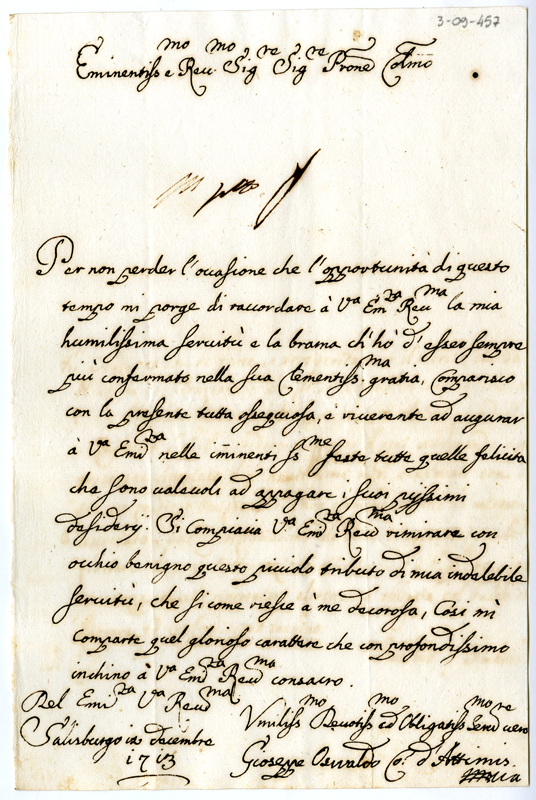 3-09-457
Eminentiss.mo e Reu.mo Sig.re Sig.re Prone Colmo
Per non perder l'occasione che l'opportunità di questo
tempo mi porge di raccordare à V.a Em.za Reu.ma la mia
humilissima seruitù e la brama ch'hò d'esser sempre
più confermato nella sua Clementiss.ma gratia, Comparisco
con la presente tutta ossequiosa, e riuerente ad augurar
à V.a Em.za nelle im̃inentiss.me feste tutte quelle felicita
che sono ualeuoli ad appagare i suoi pijssimi
desiderÿ. Si Compiacia V.a Em.za Reu.ma rimirare con
occhio benigno questo piccolo tributo di mia indelebile
seruitù, che si come riesce à me decorosa, Cosi mi
Comparte quel glorioso carattere che con profondissimo
inchino à V.a Em.za Reu.ma consacro.
Del Em.za V.a Reu.ma
Vmiliss.mo Deuotiss.mo ed Obligatiss.mo Seru.re uero
Salisburgo decembre
1713
Gioseppe Osualdo Co: d'Attimis.